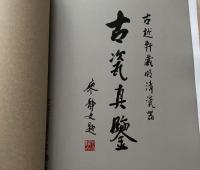 古越軒藏明清瓷器
古瓷真鑒
廖靜文題